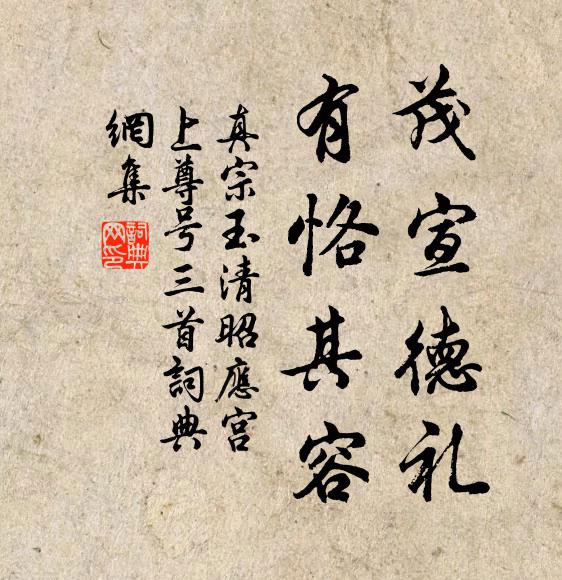 茂宣德礼
有恪其容
真宗玉清昭应宫
上尊号三首词典
網集
詞典
网印